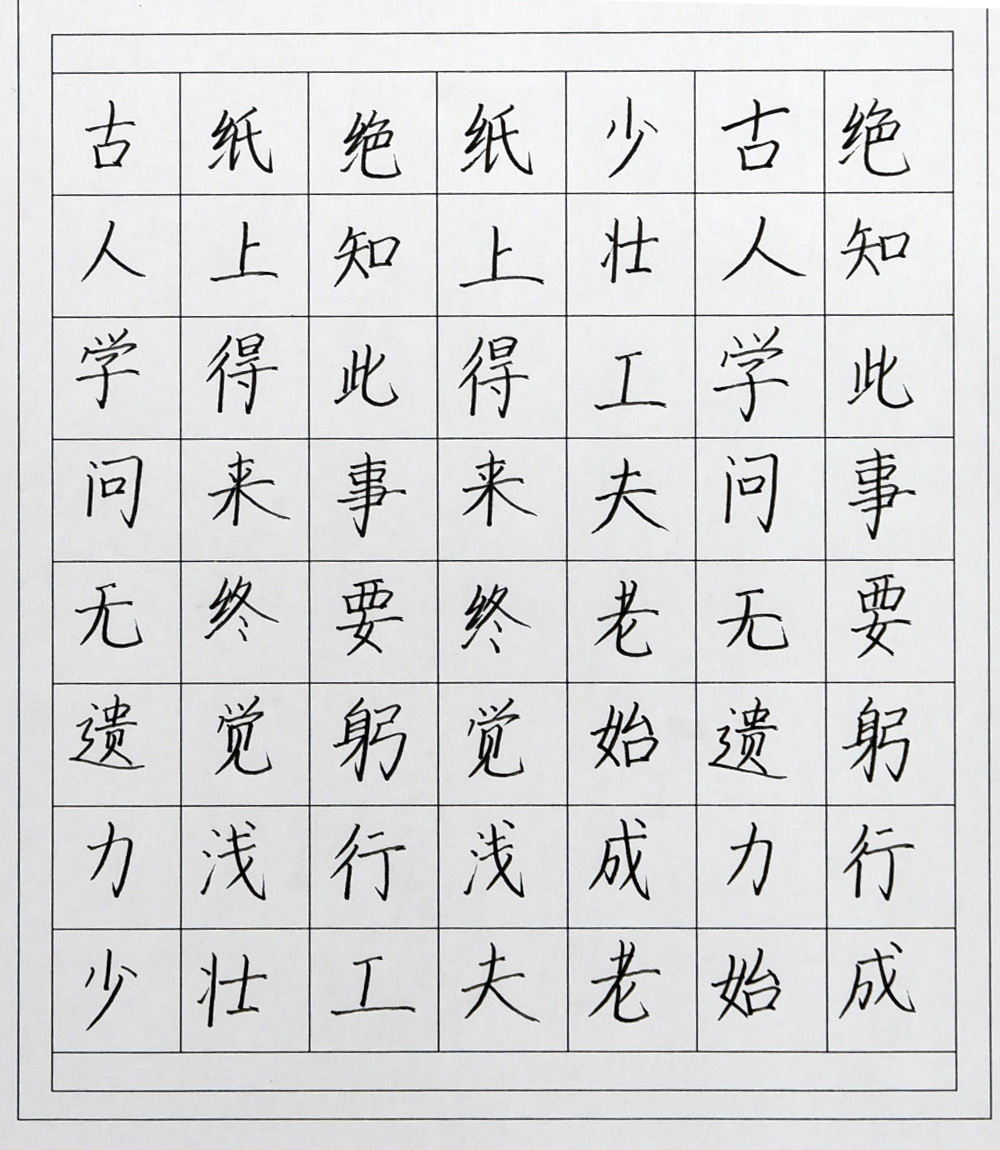 古人学问无遗力
纸上得来终觉浅
绝知此事要躬行
纸上得来终觉浅
少壮工夫老始成
古人学问无遗力
绝知此事要躬行
少壮工夫老始成